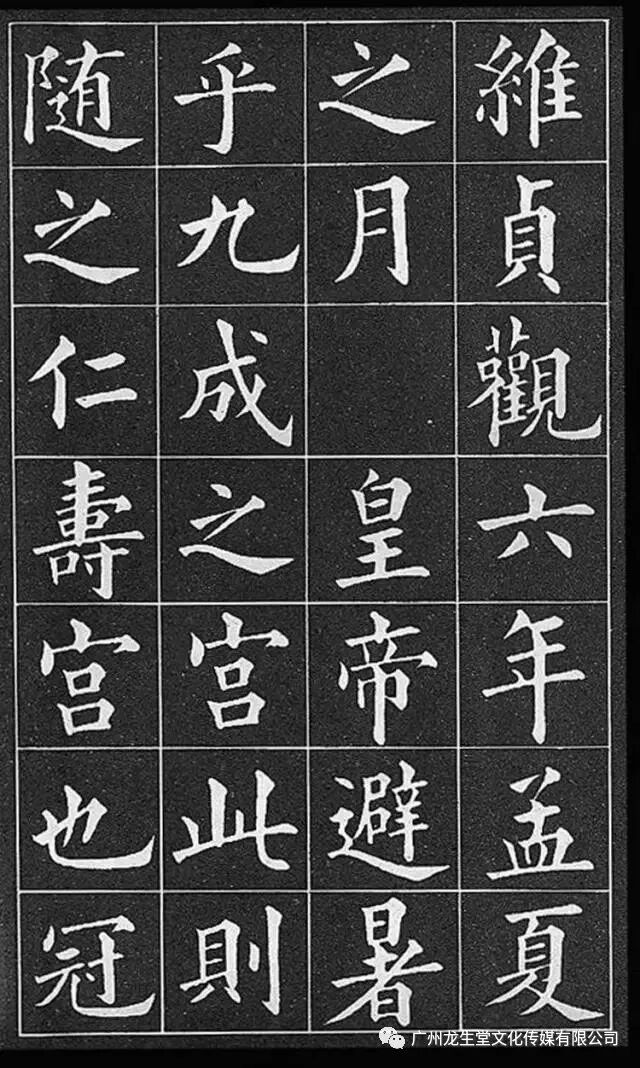 維貞觀六年孟夏
之月 皇帝避暑
乎九成之宫此則
随之仁壽宫也冠
广州龙生堂文化传媒有限公司